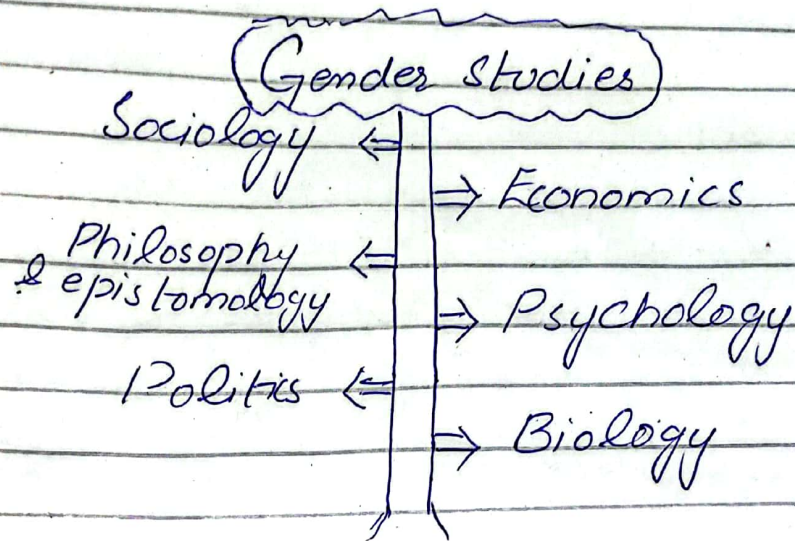 Gender Studies
Sociology
Economics
Philosophy
& epistomology
Psychology
Politics
Biology